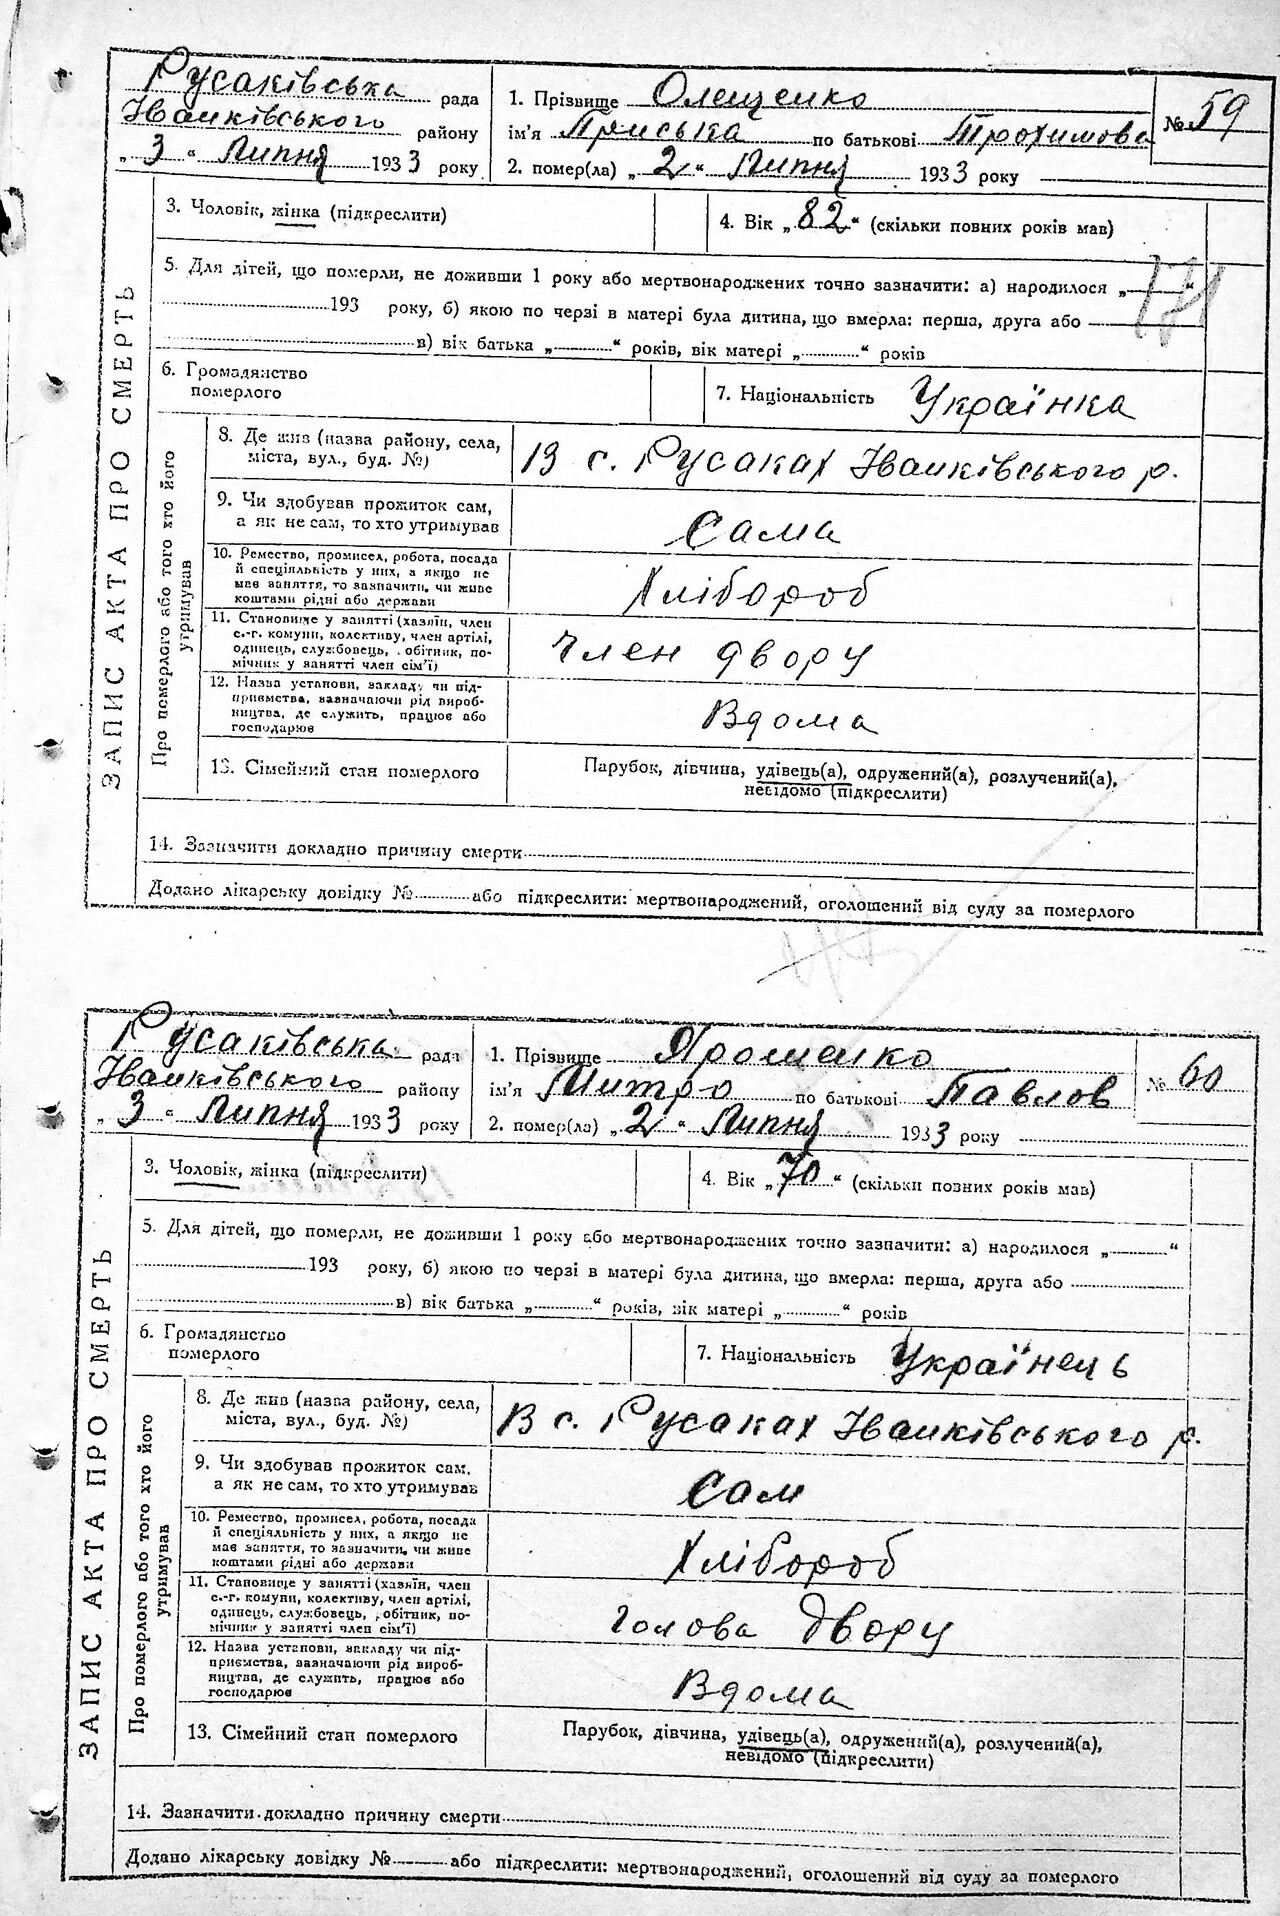 Русаківська рада
Іванківського району
„ 3 “ Липня 1933 року
1. Прізвище Олещенко
ім'я Приська по батькові Трохимова
2. помер(ла) „ 2 “ Липня 1933 року
№ 59
3. Чоловік, жінка (підкреслити)
4. Вік „ 82 “ (скільки повних років мав)
5. Для дітей, що померли, не доживши 1 року або мертвонароджених точно зазначити: а) народилося „ “
193 року, б) якою по черзі в матері була дитина, що вмерла: перша, друга або
в) вік батька „ “ років, вік матері „ “ років
6. Громадянство
померлого
7. Національність Українка
ЗАПИС АКТА ПРО СМЕРТЬ
Про померлого або того хто його
утримував
8. Де жив (назва району, села,
міста, вул., буд. №)
В с. Русаках Іванківського р.
9. Чи здобував прожиток сам,
а як не сам, то хто утримував
Сама
10. Ремество, промисел, робота, посада
й спеціяльність у них, а якщо не
має заняття, то зазначити, чи живе
коштами рідні або держави
Хлібороб
11. Становище у занятті (хазяїн, член
с.-г. комуни, колективу, член артілі,
одинець, службовець, обітник, по-
мічник у занятті член сім'ї)
Член двору
12. Назва установи, закладу чи під-
приємства, зазначаючи рід вироб-
ництва, де служить, працює або
господарює
Вдома
13. Сімейний стан померлого
Парубок, дівчина, удівець(а), одружений(а), розлучений(а),
невідомо (підкреслити)
14. Зазначити докладно причину смерти
Додано лікарську довідку № або підкреслити: мертвонароджений, оголошений від суду за померлого
Русаківська рада
Іванківського району
„ 3 “ Липня 1933 року
1. Прізвище Ярошенко
ім'я Митро по батькові Павлов
2. помер(ла) „ 2 “ Липня 1933 року
№ 60
3. Чоловік, жінка (підкреслити)
4. Вік „ 70 “ (скільки повних років мав)
5. Для дітей, що померли, не доживши 1 року або мертвонароджених точно зазначити: а) народилося „ “
193 року, б) якою по черзі в матері була дитина, що вмерла: перша, друга або
в) вік батька „ “ років, вік матері „ “ років
6. Громадянство
померлого
7. Національність Українець
ЗАПИС АКТА ПРО СМЕРТЬ
Про померлого або того хто його
утримував
8. Де жив (назва району, села,
міста, вул., буд. №)
В с. Русаках Іванківського р.
9. Чи здобував прожиток сам,
а як не сам, то хто утримував
Сам
10. Ремество, промисел, робота, посада
й спеціяльність у них, а якщо не
має заняття, то зазначити, чи живе
коштами рідні або держави
Хлібороб
11. Становище у занятті (хазяїн, член
с.-г. комуни, колективу, член артілі,
одинець, службовець, обітник, по-
мічник у занятті член сім'ї)
Голова двору
12. Назва установи, закладу чи під-
приємства, зазначаючи рід вироб-
ництва, де служить, працює або
господарює
Вдома
13. Сімейний стан померлого
Парубок, дівчина, удівець(а), одружений(а), розлучений(а),
невідомо (підкреслити)
14. Зазначити докладно причину смерти
Додано лікарську довідку № або підкреслити: мертвонароджений, оголошений від суду за померлого